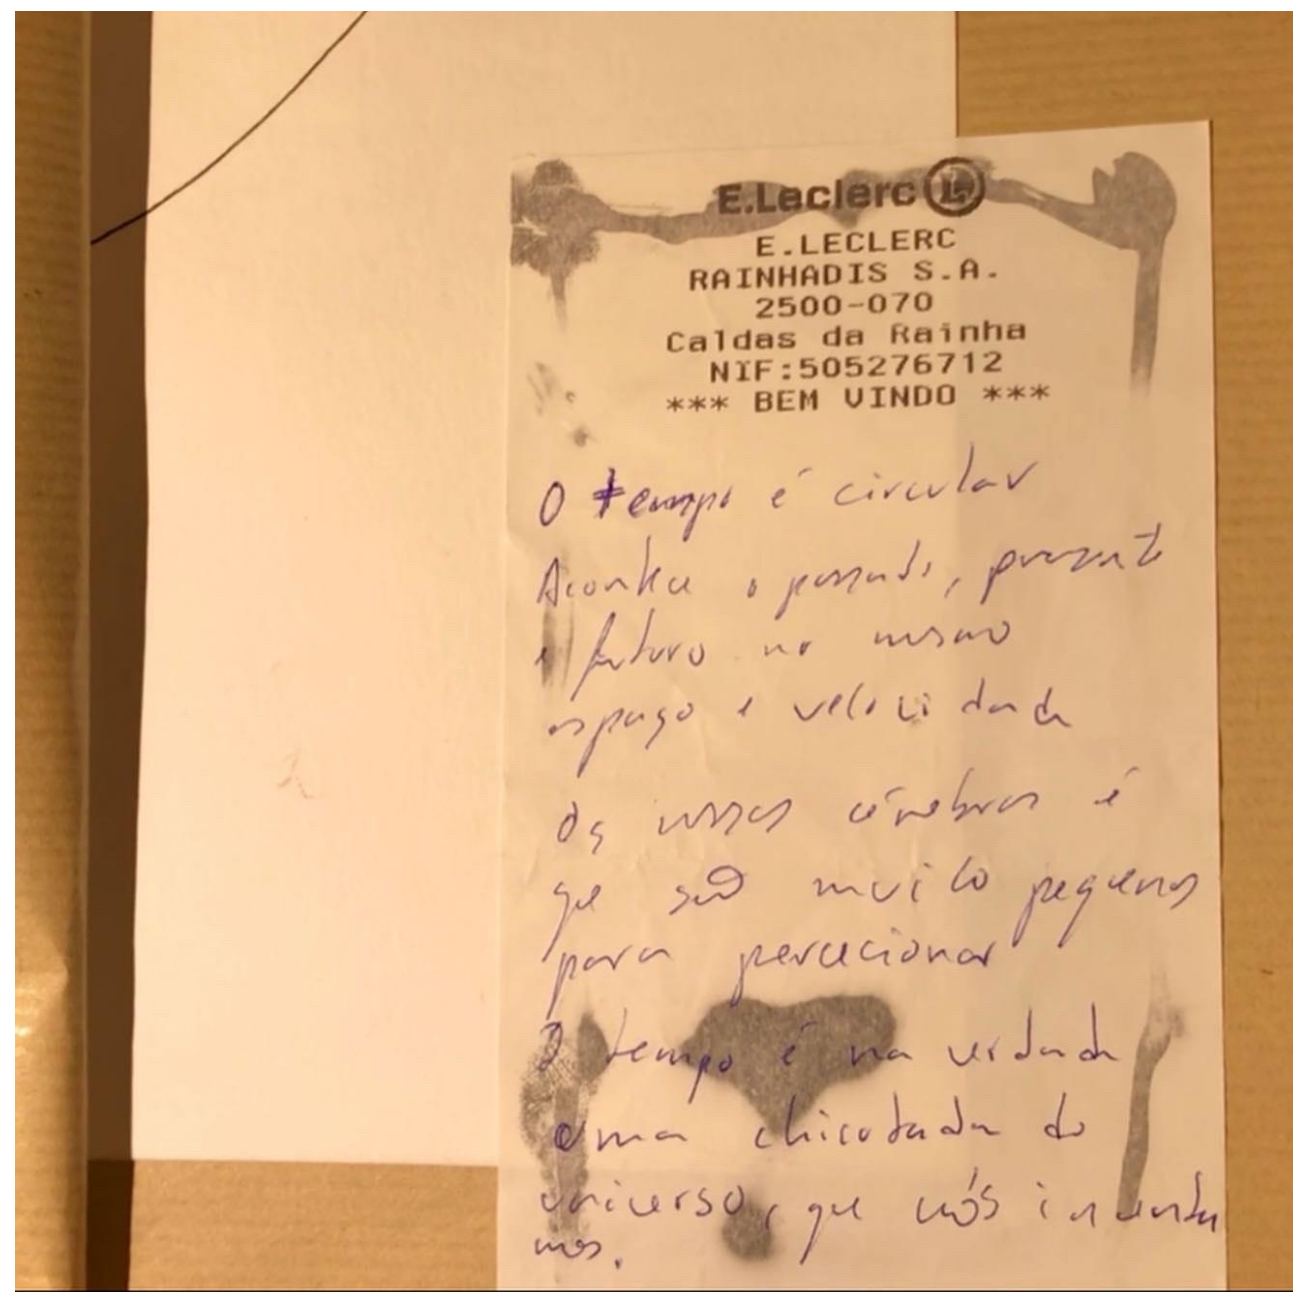 E.Leclerc L
E.LECLERC
RAINHADIS S.A.
2500-070
Caldas da Rainha
NIF:505276712
*** BEM VINDO ***
O tempo é circular
Acontece o passado, presente
e futuro no mesmo
espaço e velocidade
Os nossos cérebros é
que são muito pequenos
para percecionar
O tempo é na verdade
uma chicotada do
universo, que nós inventa
mos.